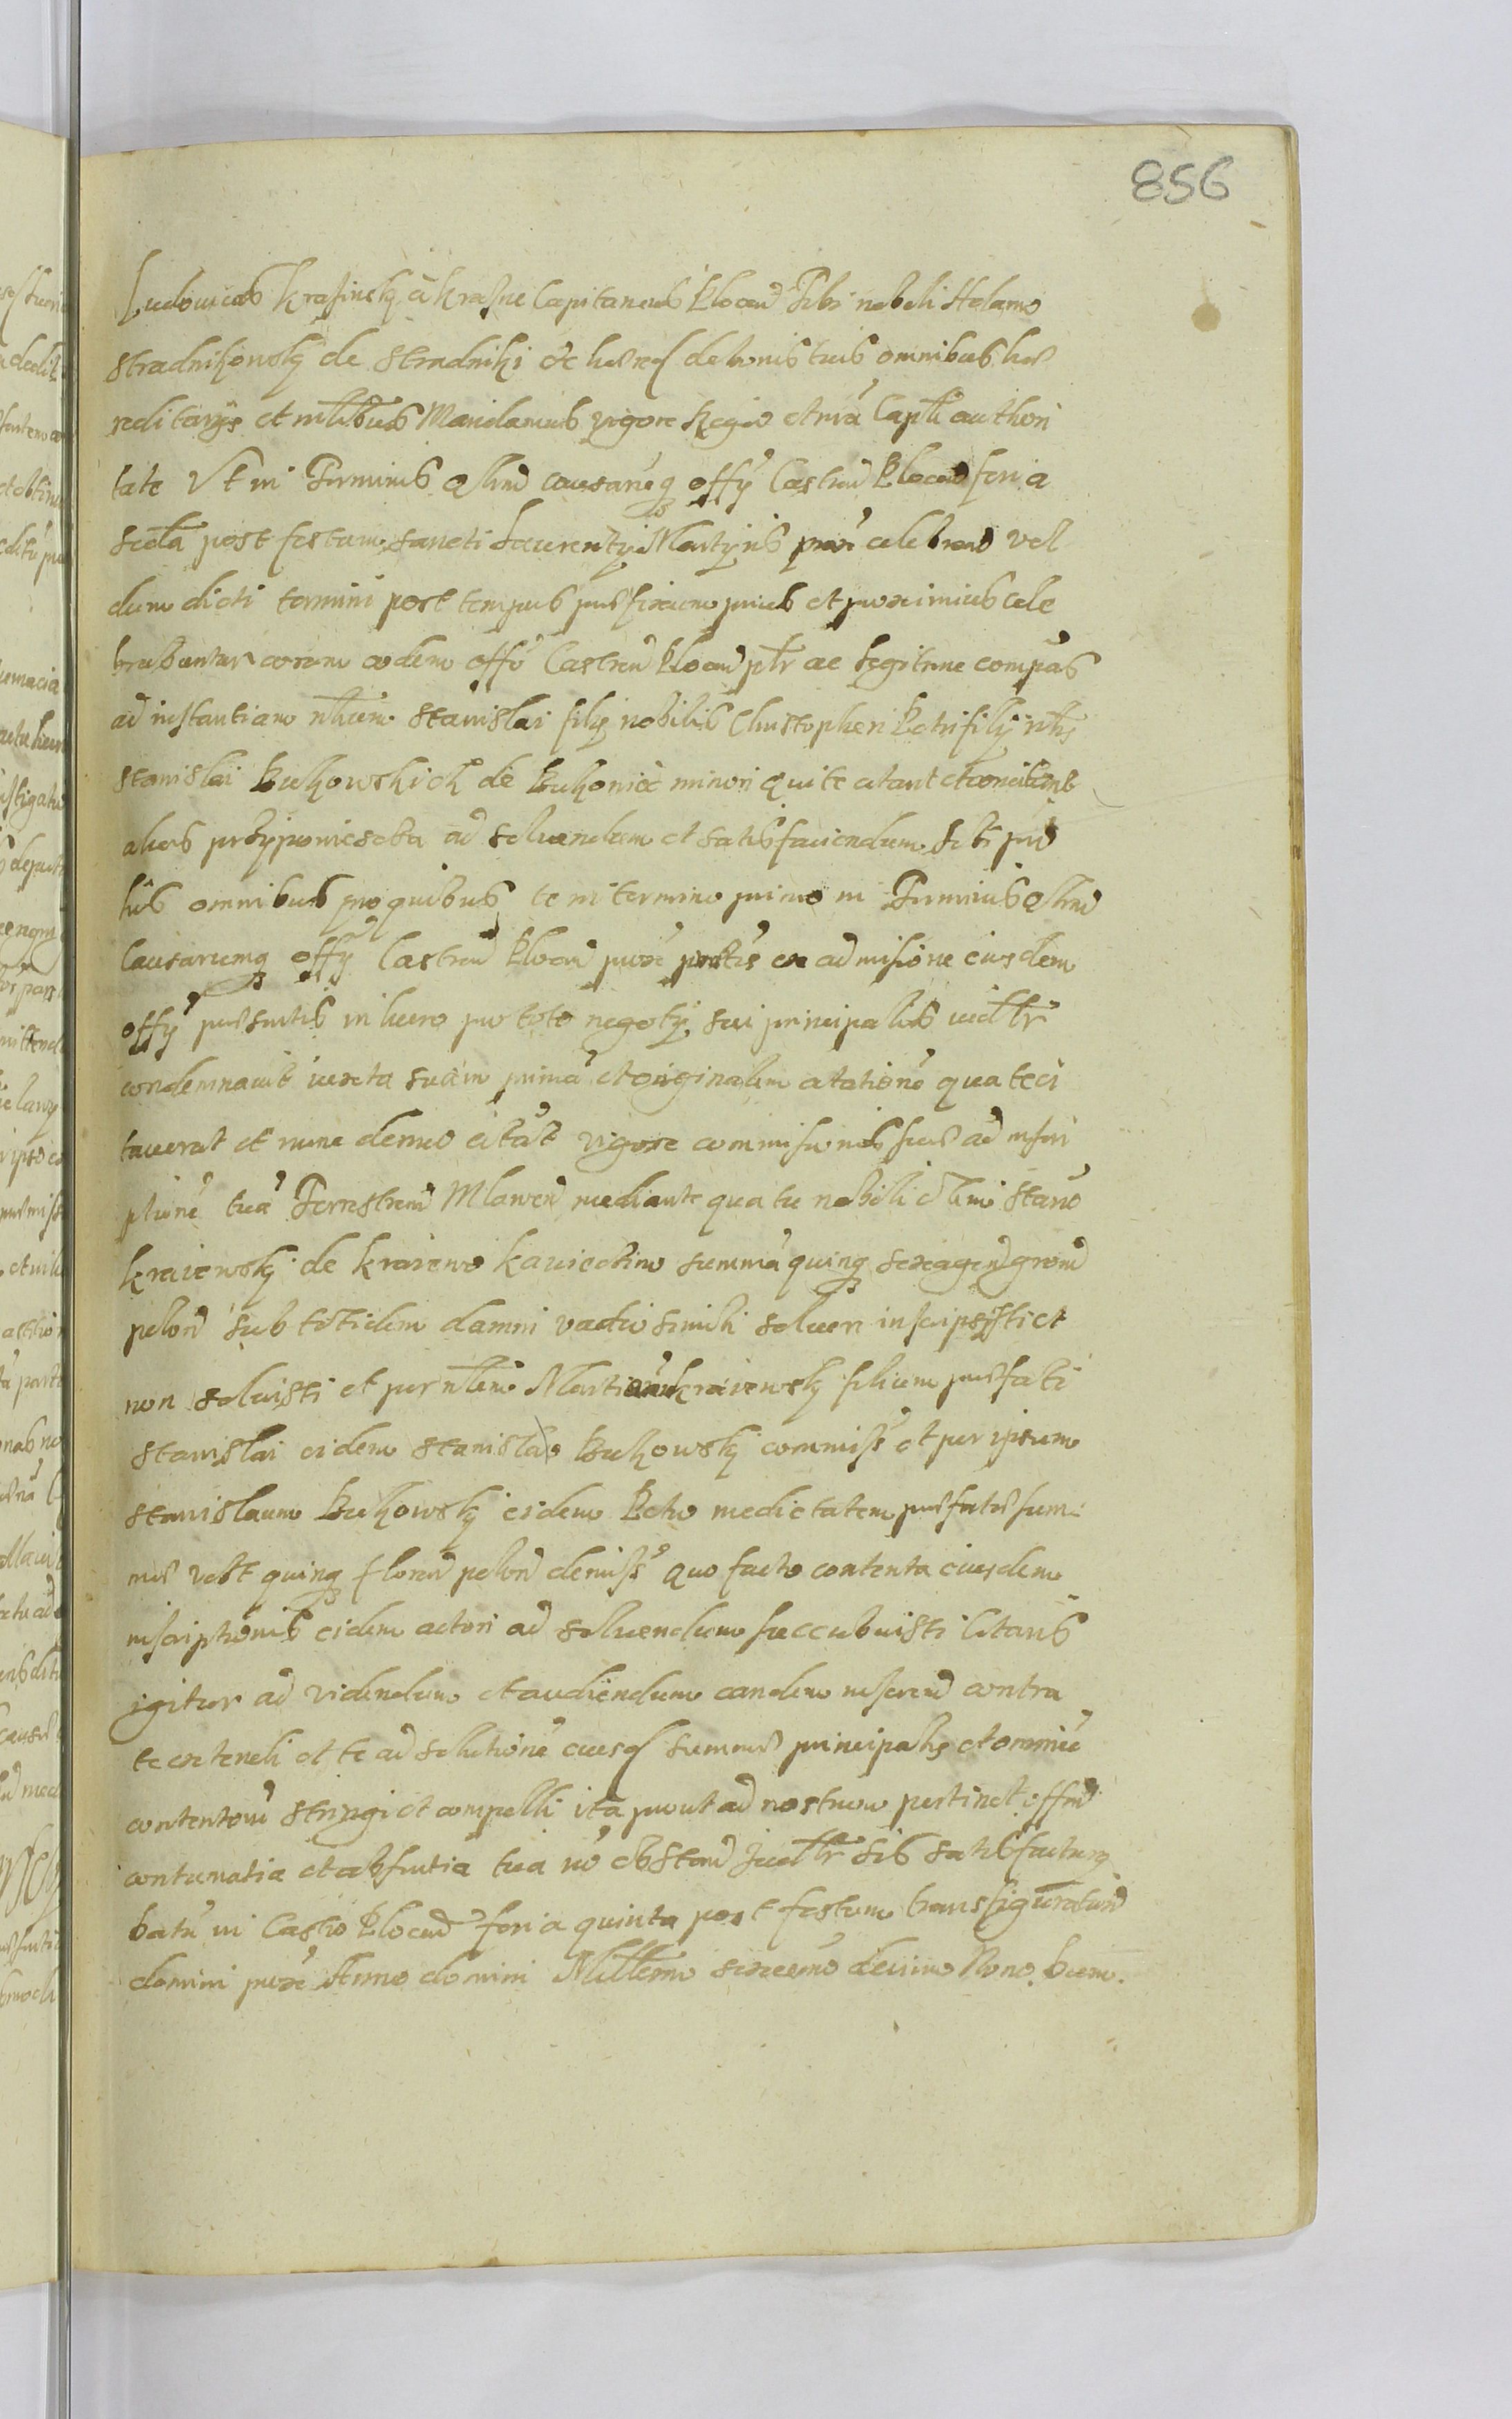 856
Ludouicus Krasinsky à Krasne Capitaneus Plocen Tibi nobili Adamo
Stradnikowsky de Stradniki &c hæred de bonis tuis omnibus hæ
reditarys et mlibus Mandamus vigore Regia et nrã Captli authori
tate Vt in Terminis Qlnd causarũq offÿ Castren Plocen feria
scda post festum sancti Laurentÿ Martyris prox celebrand vel
dum dicti termini post tempus præfixum prius et proximius cele
brabuntur coram eodem offo Castren Plocen pltr ac legitime compãs
ad instantiam nlium Stanislai filÿ nobilis Christopheri Petri filÿ nlis
Stanislai Bukowskich de Bukowiec minori qui te citant et concitant
alias przypowiesda ad soluendum et satisfaciendum sibi pro
lucris omnibus pro quibus te in termino primo in Terminis Qlnd
Causarumq offÿ Castren Plocen prox præteris ex admissione eiusdem
offÿ præsentis in lucro pro toto negoty sui principalis iudltr
condemnauit iuxta suam primã et originalem citationẽ qua te ci
tauerat et nunc denuo citat vigore commissionis suæ ad inscri
ptionẽ tuã Terrestrem Mlauen mediante qua tu nobili olim Stano
Kraiewsky de Kraiewo Kawieczino summã quinq sexagen grom
polon sub totidem damni vadio simili soluere inscripsisti et
non soluisti et per nlem Martinũ Kraiewsky filium præfati
Stanislai eidem Stanislao Bukowsky commiss et per ipsum
Stanislaum Bukowsky eidem Petro medietatem præfatæ sum
mæ vdt quinq floren polon demiss quo facto contenta eiusdem
inscriptionis eidem actori ad soluendum succubuisti Citaris
igitur ad videndum et audiendum eandem inscren contra
te extendi et te ad solutionẽ eiusd summæ principalis et omniũ
contentorũ stringi et compelli ita prout ad nostrum pertinet offm
contumatia et absentia tua nõ obstan iudltr sis satisfactuʒ
Datũ in Castro Plocen feria quinta post festum transfigurationis
domini prox Anno domini Millmo sexcenmo decimo Nono.